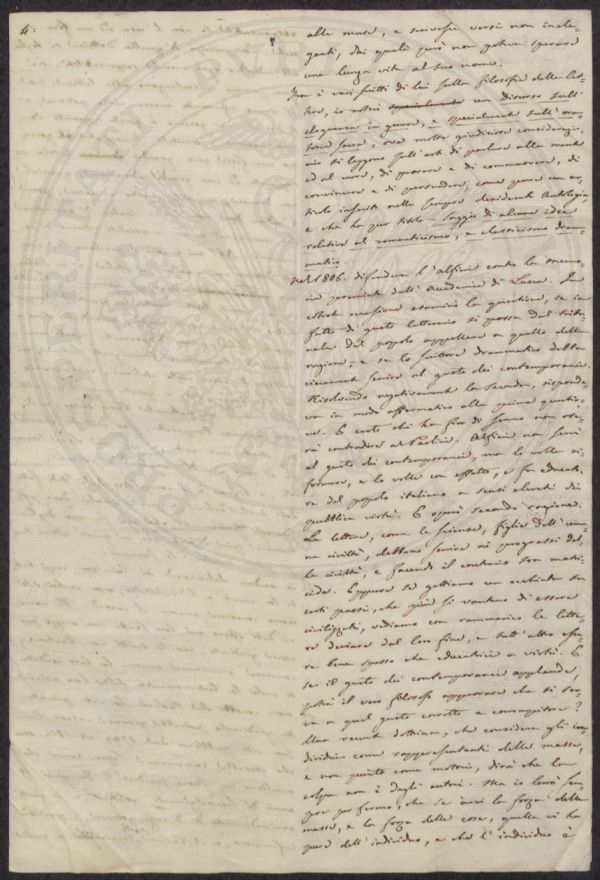 4.
alle muse, e scrivesse versi non inele-
ganti, dai quali però non poteva sperare
una lunga vita al suo nome.
Fra i vari scritti di lui sulla filosofia delle let-
tere, io noterò specialmente un Discorso sull'
eloquenza in genere, e specialmente sull'ora-
toria sacra, ove molte giudiziose considerazio-
ni si leggono sull'arte di parlare alla mente
ed al cuore, di piacere e di commuovere, di
convincere e di persuadere; come pure un ar-
ticolo inserito nella sempre desiderata Antologia,
e che ha per titolo - Saggio di alcune idee
relative al romanticismo, e classicismo dram-
matico.
Nel 1806. difendeva l'Alfieri contro la memo-
ria premiata dall'Accademia di Lucca. In
cotest'occasione esaminò la questione, se in
fatto di gusto letterario si possa dal tribu-
nale del popolo appellare a quello della
ragione; e se lo scrittore drammatico debba
ciecamente servire al gusto dei contemporanei.
Risolvendo negativamente la seconda, risponde-
va in modo affermativo alla prima questio-
ne. E certo chi ha fior di senno non ose-
rà contradire al Paolini. Alfieri non servì
al gusto dei contemporanei, ma lo volle ri-
formare, e lo volle con effetto, e fu educato-
re del popolo italiano a sensi elevati di
pubblica virtù. E operò secondo ragione.
Le lettere, come le scienze, figlie dell'uma-
na civiltà, debbono servire ai progressi del-
la civiltà, e facendo il contrario son matri-
cide. Eppure se gettiamo un'occhiata su
certi paesi, che più si vantano di essere
civilizzati, vediamo con rammarico le lette-
re deviare dal loro fine, e tutt'altro esse-
re bene spesso che educatrici a virtù. E
se il gusto dei contemporanei applaude,
potrà il vero filosofo approvare che si ser-
va a quel gusto corrotto e corruttore?
Una recente dottrina, che considera gli in-
dividui come rappresentanti delle masse,
e non punto come motori, dirà che la
colpa non è degli autori. Ma io terrò sem-
pre per fermo, che se àvvi la forza delle
masse, e la forza delle cose, quella vi ha
pure dell'individuo, e che l'individuo è